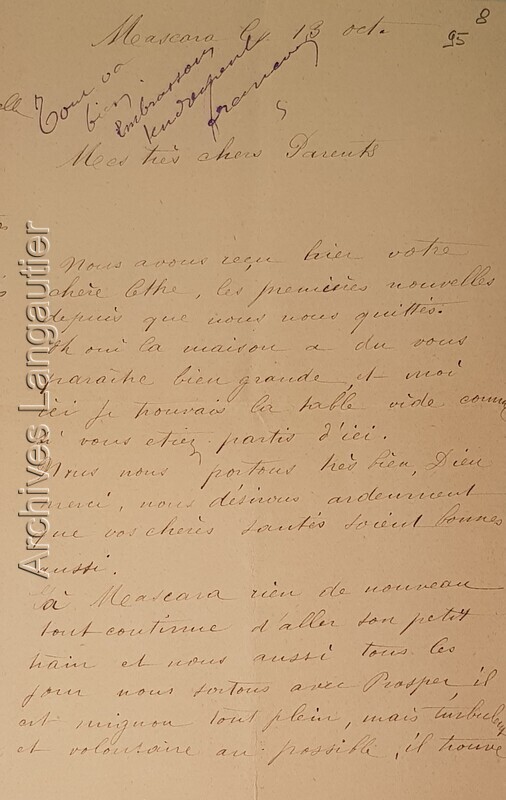 8
Mascara le 13 oct. 95
Tout va
bien
Embrassons
tendrement
Mes très chers Parents
Nous avons reçu hier votre
chère lettre, les premières nouvelles
depuis que nous nous quittés.
Eh oui la maison a du vous
paraître bien grande, et moi
ici je trouvais la table vide comme
si vous etiez partis d'ici.
Nous nous portons très bien, Dieu
merci, nous désirons ardemment
que vos chères santés soient bonnes
aussi.
à Mascara rien de nouveau
tout continue d'aller son petit
train et nous aussi tous les
jour nous sortons avec Prosper, il
est mignon tout plein, mais turbulent
et volontaire au possible, il trouve
Archives Langautier